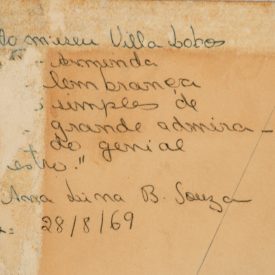 Ao museu Villa Lobos
Armenda
lembrança
simples de
grande admira-
do genial
estro."
Ana Luna B. Souza
28/8/69